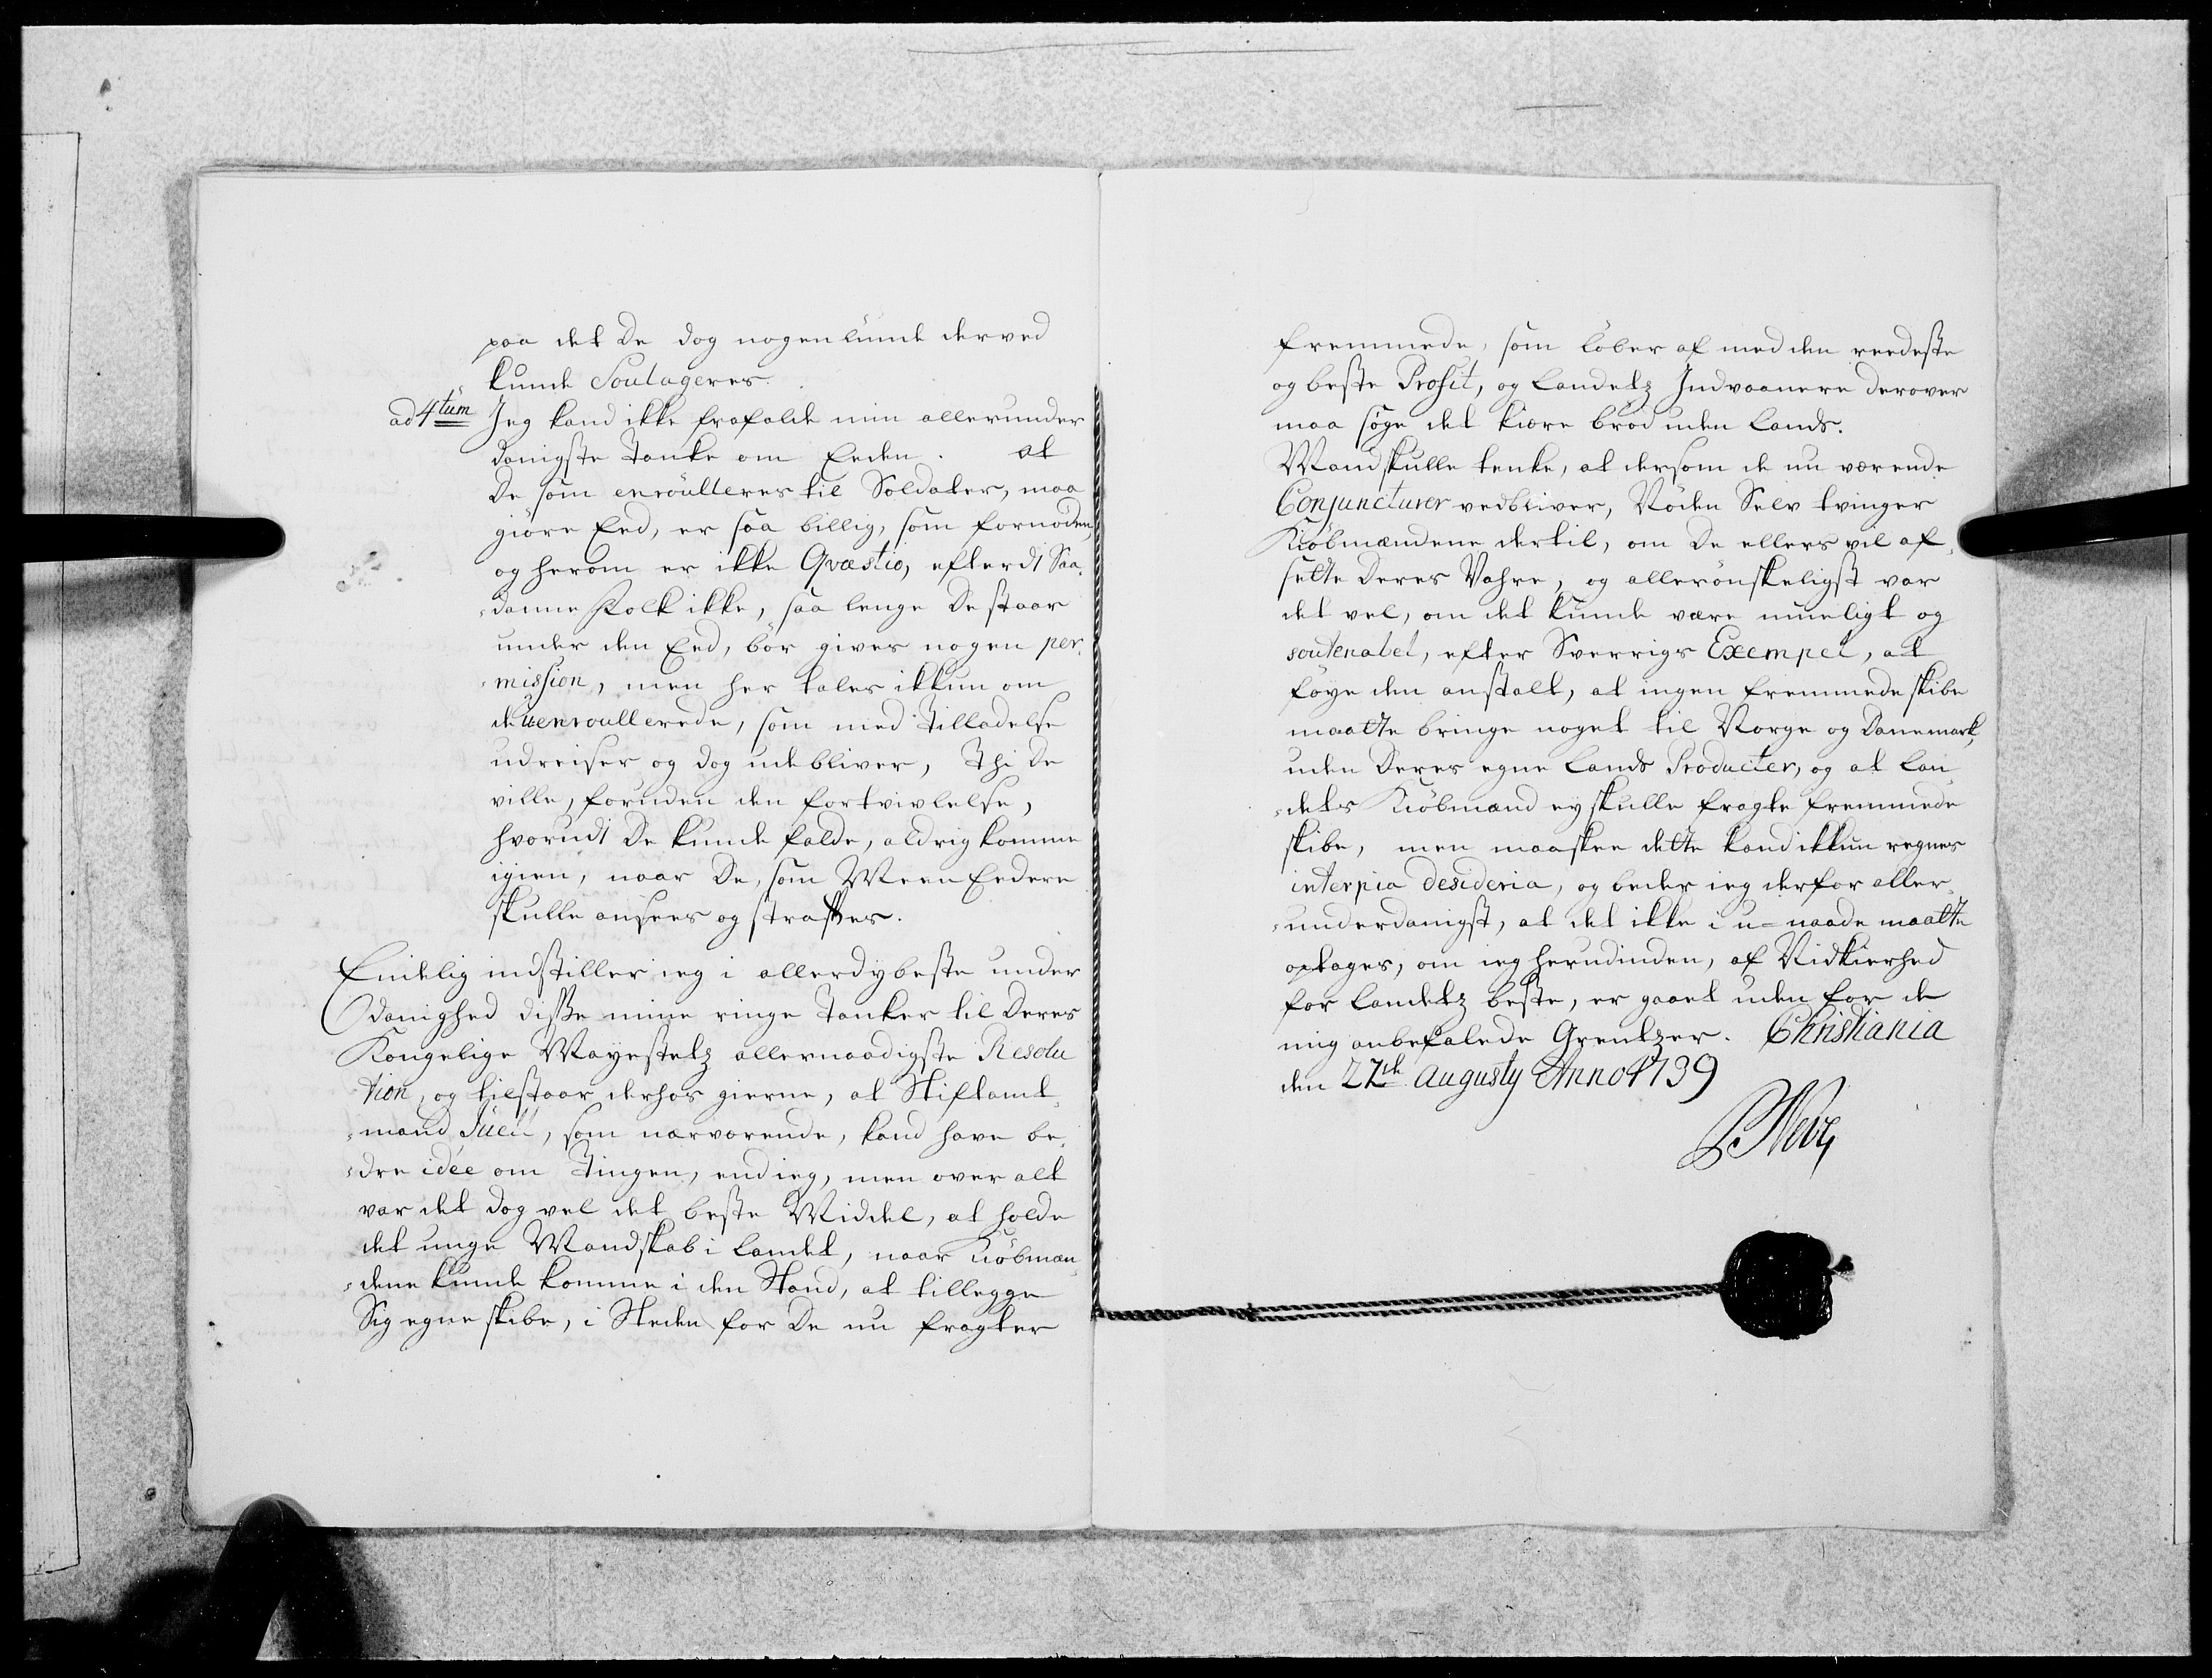 paa det De dog nogenlunde derved
kunde Soulageres.
ad 4tum Jeg kand ikke frafalde min allerunder
danigste Tanke om Eeden. at
De som enroulleres til Soldater, maa
giöre Eed, er saa billig, som fornöden,
og herom er ikke Qvæstio, efterdj Saa-
-danne Folk ikke, saa lenge De staar
under den Eed, bör gives nogen per-
-mission, men her tales ikkun om
de uenroullerede, som med Tilladelse
udreiser og dog udebliver, Thi De
ville, foruden den fortvivlelse,
hvorudj De kunde falde, aldrig komme
igien, naar De, som Meen Eedere
skulle ansees og straffes.
Endelig indstiller ieg i allerdybeste under
danighed disse mine ringe Tanker til Deres
Kongelige Mayestetz allernaadigste Resolu
tion, og tilstaar derhos gierne, at Stiftamt-
-mand Juell, som nærværende, kand have be-
-dre idée om Tingen, end ieg, men over alt
var det dog vel det beste Middel, at holde
det unge Mandskab i Landet, naar Kiöbmæn-
-dene kunde komme i den Stand, at tillegge
Sig egne skibe, i Steden for De nu fragter
fremmede, som löber af med den reedeste
og beste Profit, og Landetz Indvaanere derover
maa söge det kiære bröd uden Lands.
Mand skulle tenke, at dersom de nu værende
Conjuncturer vedbliver, Nöden Selv tvinger
Kiöbmændene dertil, om De ellers vil af-
sette Deres Vahre, og allerönskeligst var
det vel, om det kunde være mueligt og
soutenabel, efter Sverrigs Exempel, at
föye den anstalt, at ingen fremmede skibe
maatte bringe noget til Norge og Danemark,
uden Deres egne Lands Producter, og at Lan-
-dets Kiöbmænd ey skulle fragte fremmede
skibe, men maaskee dette kand ikkun regnes
inter pia desideria, og beder ieg derfor aller-
-underdanigst, at det ikke i u-naade maatte
optages, om ieg herudinden, af Nidkierhed
for Landetz beste, er gaaet uden for de
mig anbefalede Grentzer. Christiania
den 27de Augusty Anno 1739